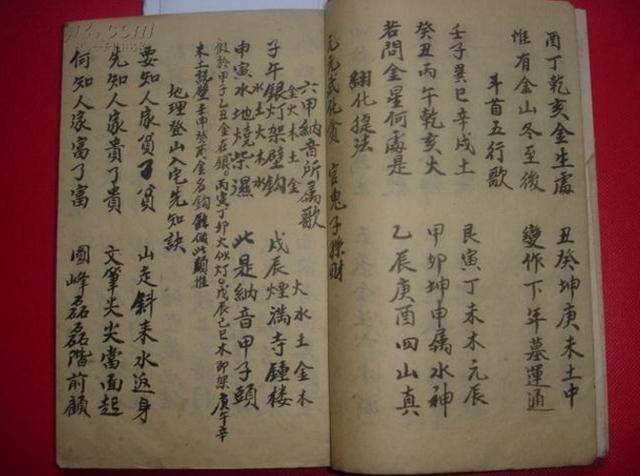 酉丁乾亥金生處 丑癸坤庚未土中
惟有金山冬至後 變作下年墓運通
斗首五行歌
壬子巽巳辛戌土 艮寅丁未木元辰
癸丑丙午乾亥火 甲卯坤申属水神
若問金星何處是 乙辰庚酉四山真
化提法
元元武化貪 官鬼子孫財
六甲納音所属歌
金火木土金 火水土金木
子午銀灯架壁鈎 戊辰煙滿寺鍾楼
水土火木水
申寅水地燒柴濕 此是納音甲子頭
假於甲子乙丑金在銀○丙寅丁卯火似灯○戊辰己巳木即架庚午辛
未土壁壬申癸酉金名鈎餘倣此類推
地理登山入宅先知訣
要知人家貧了貧 山走斜来水返身
先知人家貴了貴 文筆尖尖當面起
何知人家富了富 圓峰磊磊階前顧